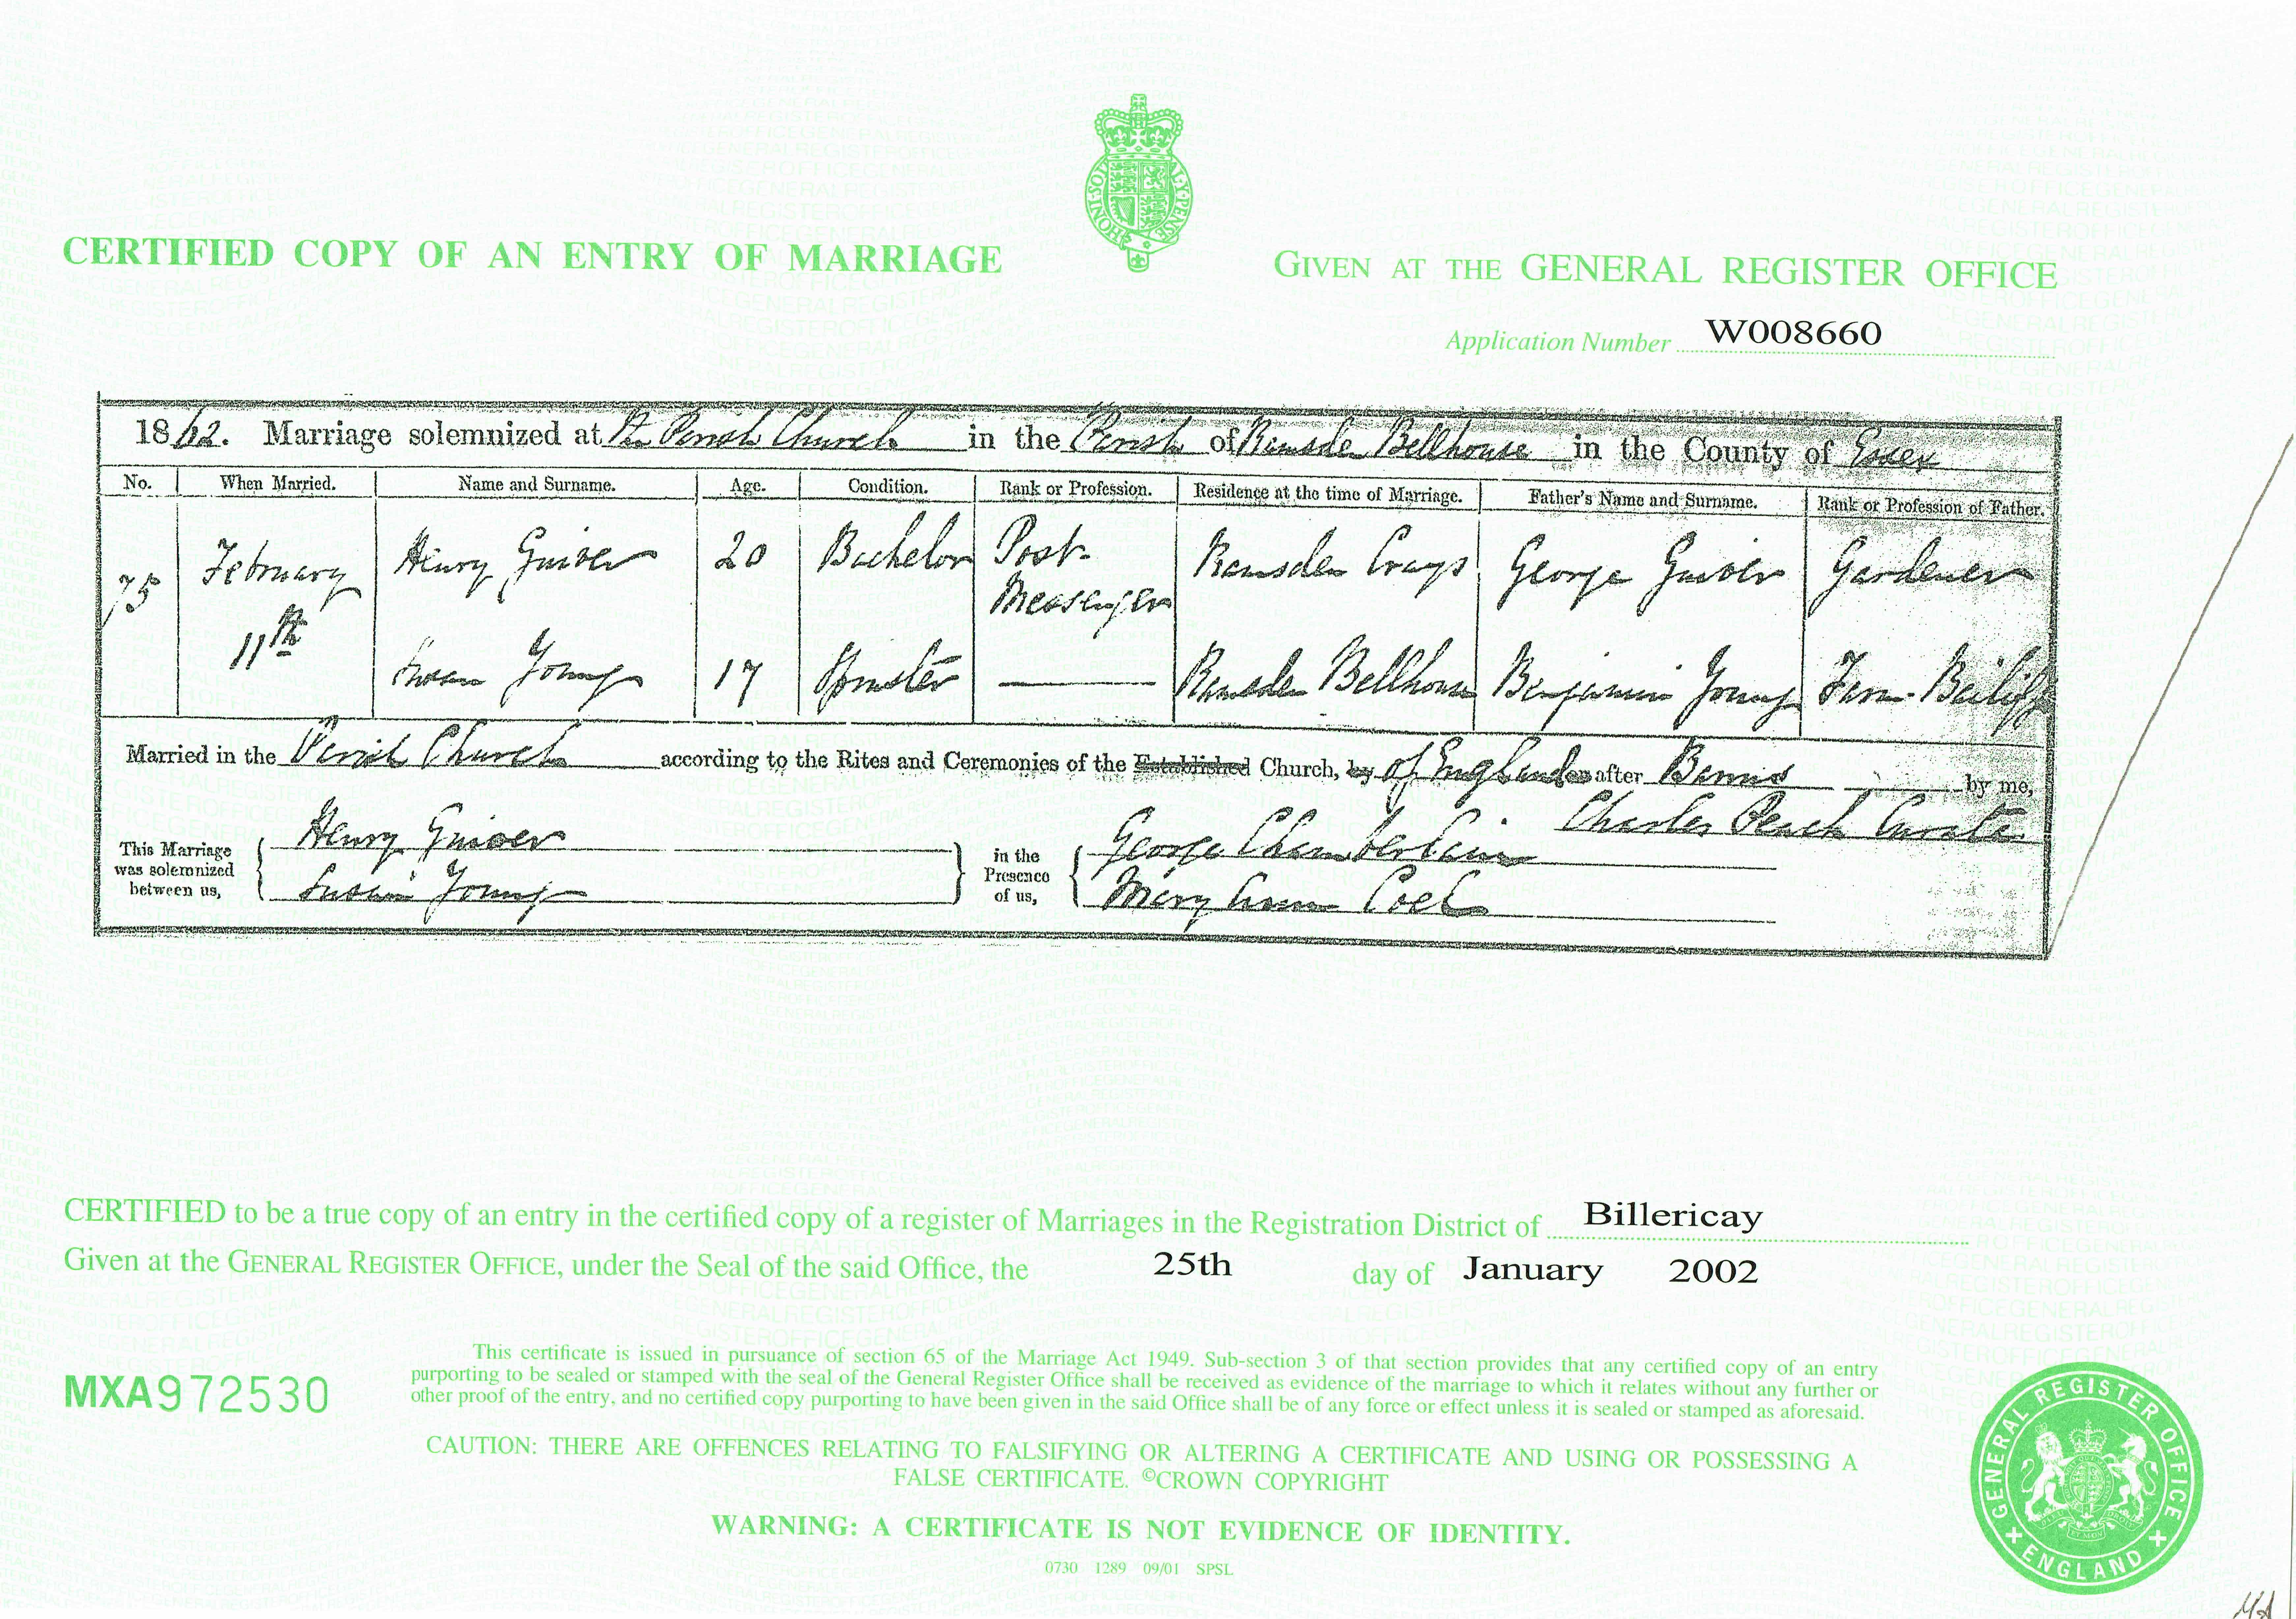 CERTIFIED COPY OF AN ENTRY OF MARRIAGE
GIVEN AT THE GENERAL REGISTER OFFICE
Application Number W008660
1862. Marriage solemnized at the Parish Church in the Parish of Ramsden Bellhouse in the County of Essex
No. When Married. Name and Surname. Age. Condition. Rank or Profession. Residence at the time of Marriage. Father's Name and Surname. Rank or Profession of Father.
75 February 11th Henry Guiver 20 Bachelor Post-Messenger Ramsden Crays George Guiver Gardener
Susan Young 17 Spinster Ramsden Bellhouse Benjamin Young Farm-Bailiff
Married in the Parish Church according to the Rites and Ceremonies of the Established Church, by of England after Banns by me,
Charles Peach Curate
This Marriage was solemnized between us, Henry Guiver in the Presence of us, George Chamberlain
Susan Young Mary Ann Coel
CERTIFIED to be a true copy of an entry in the certified copy of a register of Marriages in the Registration District of Billericay
Given at the GENERAL REGISTER OFFICE, under the Seal of the said Office, the 25th day of January 2002
This certificate is issued in pursuance of section 65 of the Marriage Act 1949. Sub-section 3 of that section provides that any certified copy of an entry
purporting to be sealed or stamped with the seal of the General Register Office shall be received as evidence of the marriage to which it relates without any further or
other proof of the entry, and no certified copy purporting to have been given in the said Office shall be of any force or effect unless it is sealed or stamped as aforesaid.
MXA972530
CAUTION: THERE ARE OFFENCES RELATING TO FALSIFYING OR ALTERING A CERTIFICATE AND USING OR POSSESSING A
FALSE CERTIFICATE. ©CROWN COPYRIGHT
WARNING: A CERTIFICATE IS NOT EVIDENCE OF IDENTITY.
0730 1289 09/01 SPSL
GENERAL REGISTER OFFICE
ENGLAND